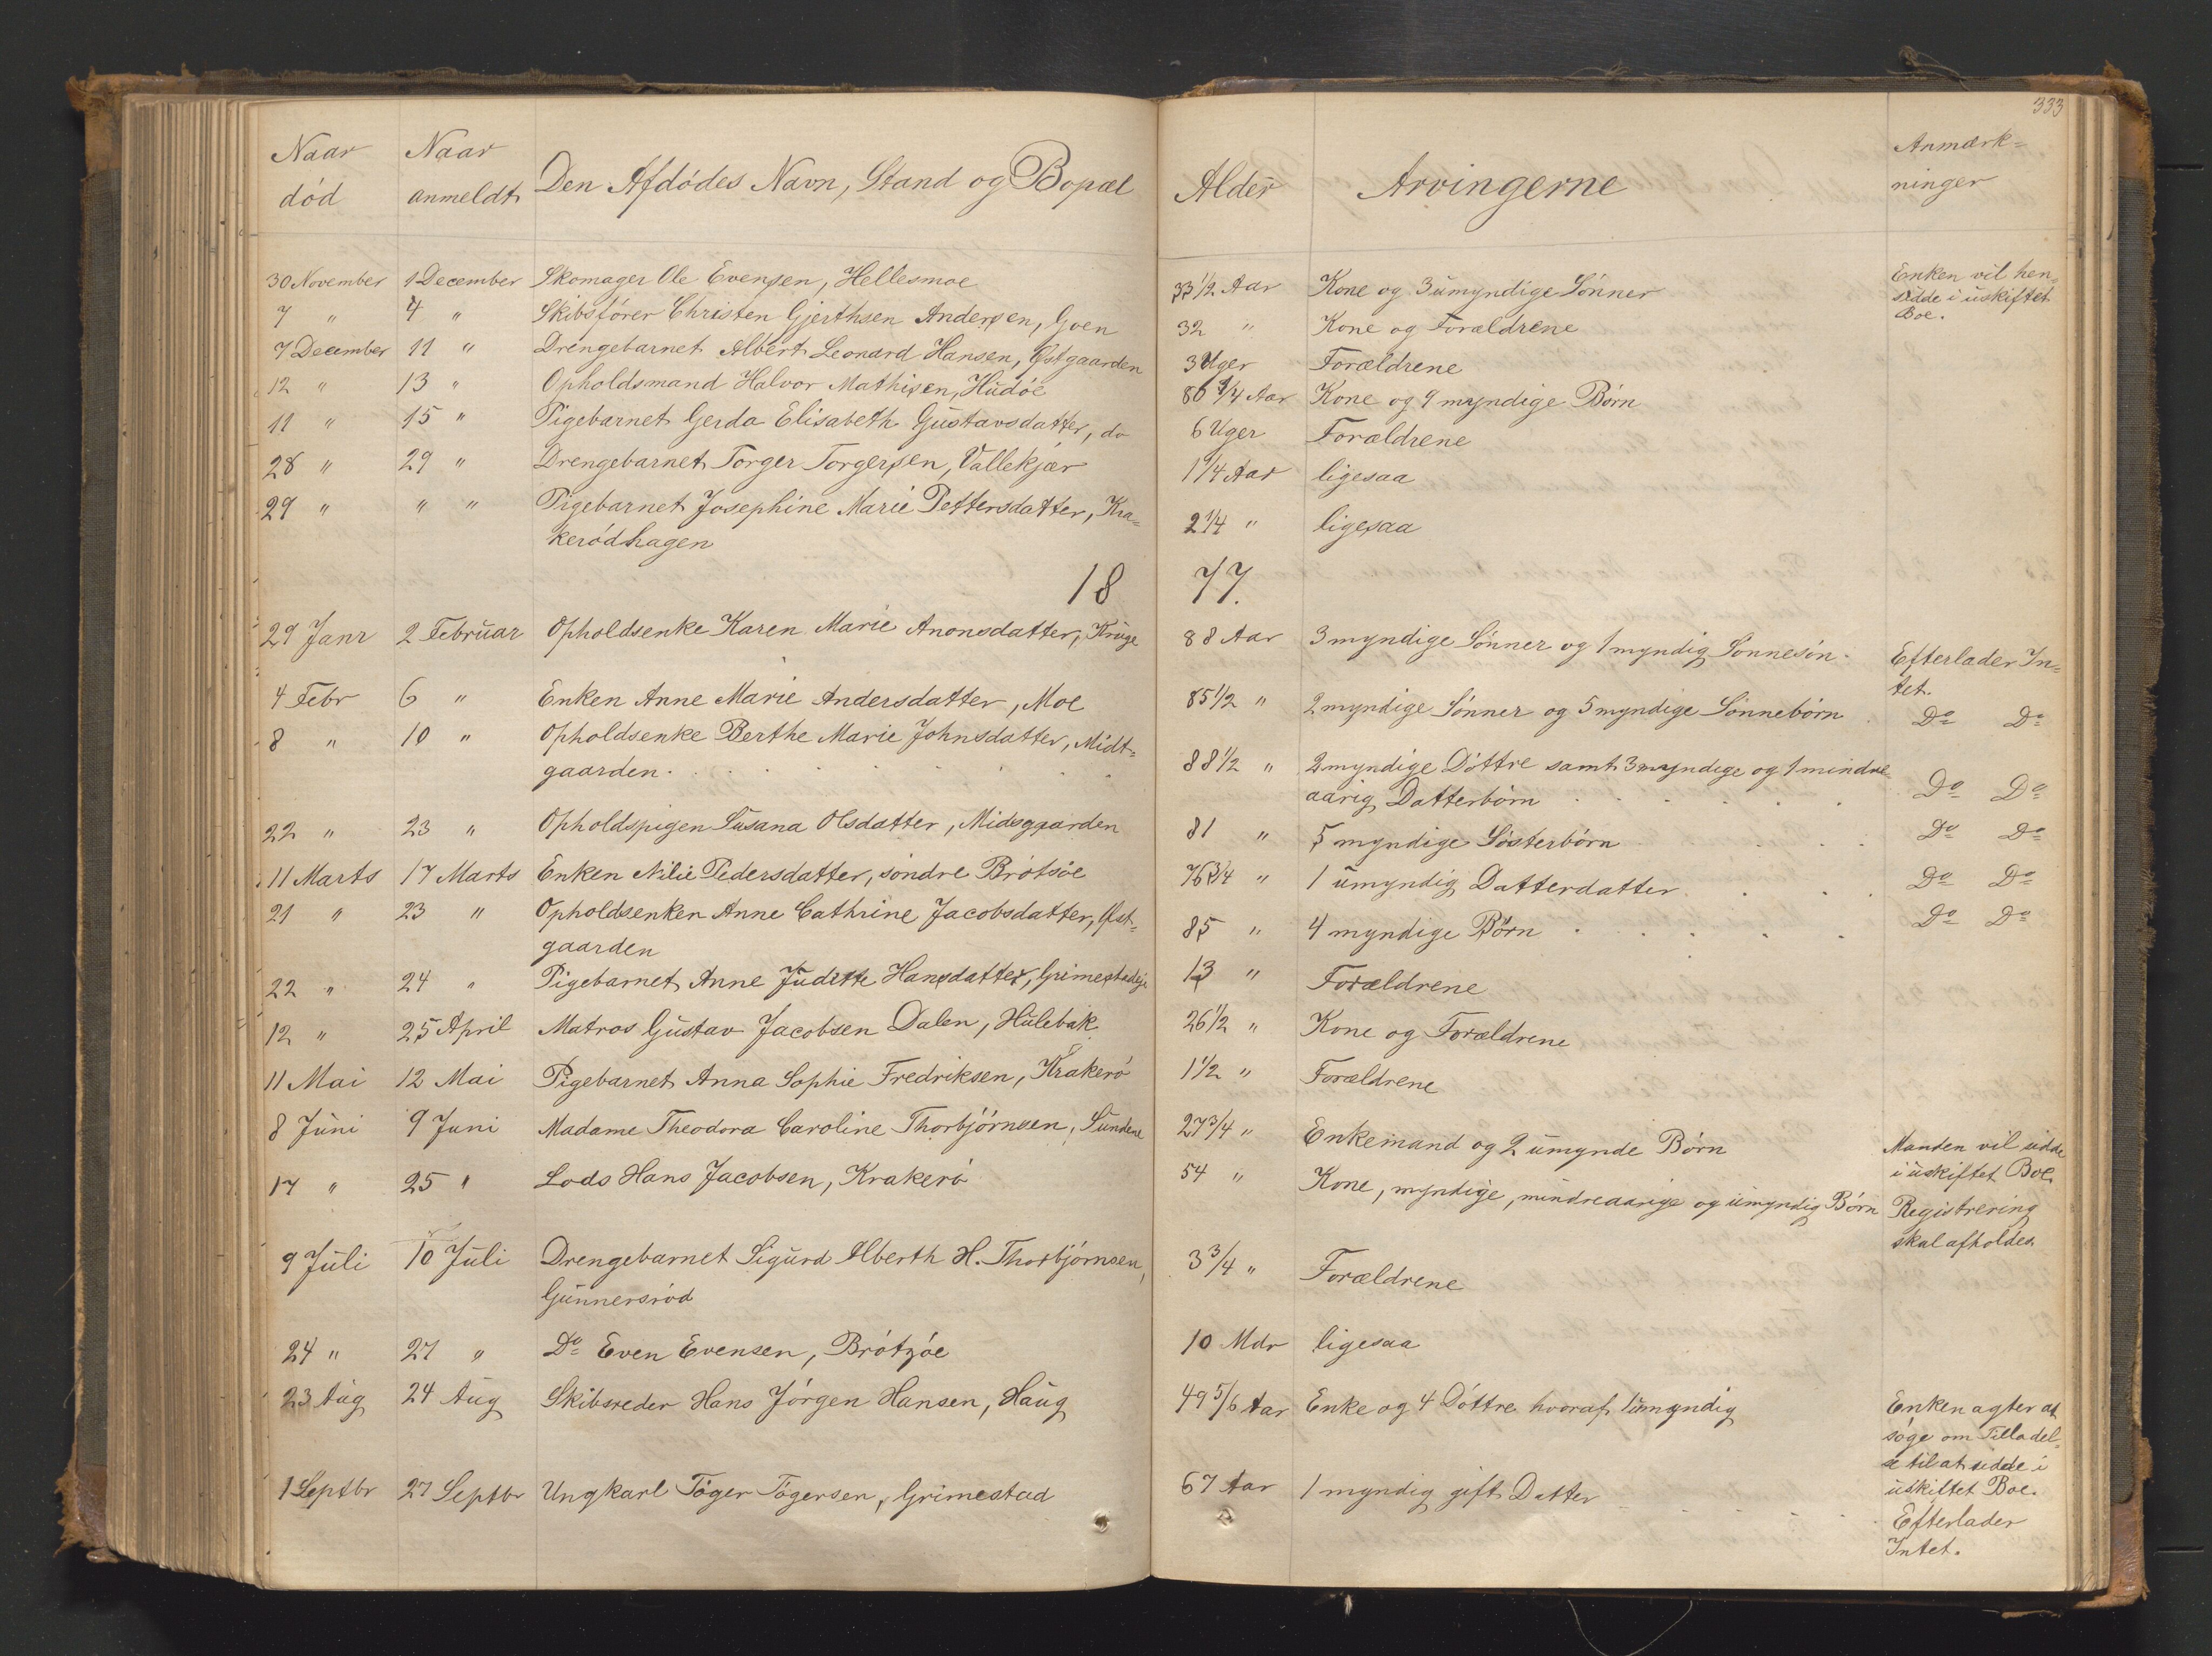 333
Naar død	Naar anmeldt	Den Afdødes Navn, Stand og Bopæl	Alder	Arvingerne	Anmærk=
ninger
30 November	1 December	Skomager Ole Evensen, Hellesmoe	33 1/2 Aar	Kone og 3 umyndige Sønner	Enken vil hen-
sidde i uskiftet
Boe.
7 "	4 "	Skibsfører Christen Gjerthsen Andersen, Goen	32 "	Kone og Forældrene
7 December	11 "	Drengebarnet Albert Leonard Hansen, Østgaarden	3 Uger	Forældrene
12 "	13 "	Opholdsmand Halvor Mathisen, Hudøe	86 1/4 Aar	Kone og 9 myndige Børn
11 "	15 "	Pigebarnet Gerda Elisabeth Gustavsdatter, do	6 Uger	Forældrene
28 "	29 "	Drengebarnet Torger Torgersen, Vallekjær	1 1/4 Aar	ligesaa
29 "	" "	Pigebarnet Josephine Marie Pettersdatter, Kra=
kerødhagen	2 1/4 "	ligesaa
18 77.
29 Janr	2 Februar	Opholdsenke Karen Marie Anonsdatter, Kruge	88 Aar	3 myndige Sønner og 1 myndig Sønnesøn.	Efterlader In=
tet.
4 Febr	6 "	Enken Anne Marie Andersdatter, Moe	85 1/2 "	2 myndige Sønner og 5 myndige Sønnebørn	Do Do
8 "	10 "	Opholdsenke Berthe Marie Johnsdatter, Midt=
gaarden	88 1/2 "	2 myndige Døttre samt 3 myndige og 1 mindre=
aarig Datterbørn	Do Do
22 "	23 "	Opholdspigen Susana Olsdatter, Midsgaarden	81 "	5 myndige Søsterbørn	Do Do
11 Marts	17 Marts	Enken Nilie Pedersdatter, søndre Brøtsøe	76 3/4 "	1 umyndig Datterdatter	Do Do
21 "	23 "	Opholdsenken Anne Cathrine Jacobsdatter, Øst=
gaarden	85 "	4 myndige Børn	Do Do
22 "	24 "	Pigebarnet Anne Juditte Hansdatter, Grimestadeje	13 "	Forældrene
12 "	25 April	Matros Gustav Jacobsen Dalen, Hulebak	26 1/2 "	Kone og Forældrene
11 Mai	12 Mai	Pigebarnet Anna Sophie Fredriksen, Krakerø	1 1/2 "	Forældrene
8 Juni	9 Juni	Madame Theodora Caroline Thorbjørnsen, Sundene	27 3/4 "	Enkemand og 2 umynde Børn	Manden vil sidde
i uskiftet Boe.
17 "	25 "	Lods Hans Jacobsen, Krakerø	54 "	Kone, myndige, mindreaarige og umyndig Børn	Registrering
skal afholdes.
9 Juli	10 Juli	Drengebarnet Sigurd Alberth H. Thorbjørnsen,
Gunnersrød	3 3/4 "	Forældrene
24 "	27 "	Do Even Evensen, Brøtsøe	10 Mdr	ligesaa
23 Aug	24 Aug	Skibsreder Hans Jørgen Hansen, Haug	49 5/6 Aar	Enke og 4 Døttre hvoraf 1 umyndig	Enken agter at
søge om Tilladel=
se til at sidde i
uskiftet Boe.
1 Septbr	27 Septbr	Ungkarl Tøger Tøgersen, Grimestad	67 Aar	1 myndig gift Datter	Efterlader
Intet.